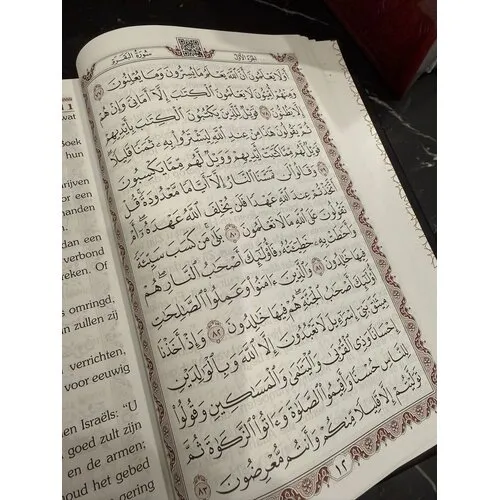 سُورَةُ البَقَرَةِ
الجُزْءُ الأَوَّلُ
أَوَلَا يَعْلَمُونَ أَنَّ ٱللَّهَ يَعْلَمُ مَا يُسِرُّونَ وَمَا يُعْلِنُونَ ٧٧
وَمِنْهُمْ أُمِّيُّونَ لَا يَعْلَمُونَ ٱلْكِتَٰبَ إِلَّآ أَمَانِيَّ وَإِنْ هُمْ
إِلَّا يَظُنُّونَ ٧٨ فَوَيْلٌ لِّلَّذِينَ يَكْتُبُونَ ٱلْكِتَٰبَ بِأَيْدِيهِمْ
ثُمَّ يَقُولُونَ هَٰذَا مِنْ عِندِ ٱللَّهِ لِيَشْتَرُوا۟ بِهِۦ ثَمَنًا قَلِيلًا
فَوَيْلٌ لَّهُم مِّمَّا كَتَبَتْ أَيْدِيهِمْ وَوَيْلٌ لَّهُم مِّمَّا يَكْسِبُونَ
٧٩ وَقَالُوا۟ لَن تَمَسَّنَا ٱلنَّارُ إِلَّآ أَيَّامًا مَّعْدُودَةً قُلْ
أَتَّخَذْتُمْ عِندَ ٱللَّهِ عَهْدًا فَلَن يُخْلِفَ ٱللَّهُ عَهْدَهُۥٓ أَمْ
تَقُولُونَ عَلَى ٱللَّهِ مَا لَا تَعْلَمُونَ ٨٠ بَلَىٰ مَن كَسَبَ سَيِّئَةً
وَأَحَٰطَتْ بِهِۦ خَطِيٓـَٔتُهُۥ فَأُو۟لَٰٓئِكَ أَصْحَٰبُ ٱلنَّارِ هُمْ
فِيهَا خَٰلِدُونَ ٨١ وَٱلَّذِينَ ءَامَنُوا۟ وَعَمِلُوا۟ ٱلصَّٰلِحَٰتِ
أُو۟لَٰٓئِكَ أَصْحَٰبُ ٱلْجَنَّةِ هُمْ فِيهَا خَٰلِدُونَ ٨٢ وَإِذْ أَخَذْنَا
مِيثَٰقَ بَنِىٓ إِسْرَٰٓءِيلَ لَا تَعْبُدُونَ إِلَّا ٱللَّهَ وَبِٱلْوَٰلِدَيْنِ
إِحْسَانًا وَذِى ٱلْقُرْبَىٰ وَٱلْيَتَٰمَىٰ وَٱلْمَسَٰكِينِ وَقُولُوا۟
لِلنَّاسِ حُسْنًا وَأَقِيمُوا۟ ٱلصَّلَوٰةَ وَءَاتُوا۟ ٱلزَّكَوٰةَ ثُمَّ
تَوَلَّيْتُمْ إِلَّا قَلِيلًا مِّنكُمْ وَأَنتُم مُّعْرِضُونَ ٨٣
١٢
wat
Boek
hun
hrijven
or een
handen
dan een
verbond
reken. Of
omringd,
n zullen zij
verrichten,
voor eeuwig
en Israëls: "U
goed zult zijn
en de armen;
houd het gebed
gering